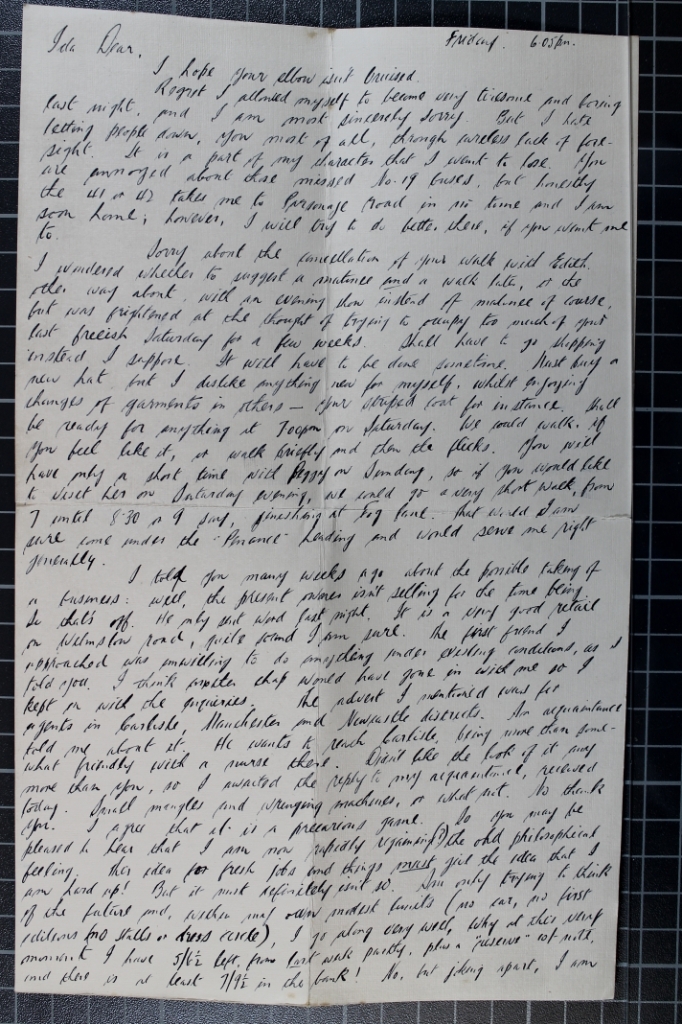 Friday. 6.05pm.
Ida Dear,
I hope your elbow isn't bruised.
Regret I allowed myself to become very tiresome and boring
last night, and I am most sincerely sorry. But I hate
letting people down, you most of all, through careless lack of fore-
sight. It is a part of my character that I want to lose. You
are annoyed about those missed No. 19 buses, but honestly
the 41 or 42 takes me to Parsonage Road in no time and I am
soon home; however, I will try to do better there, if you want me
to.
Sorry about the cancellation of your walk with Edith.
I wondered whether to suggest a matinee and a walk late, or the
other way about, with an evening show instead of matinee of course,
but was frightened at the thought of trying to occupy too much of your
last freeish Saturday for a few weeks. Shall have to go shopping
instead I suppose. It will have to be done sometime. Must buy a
new hat, but I dislike anything new for myself, whilst enjoying
changes of garments in others — your striped coat for instance. Shall
be ready for anything at 7ocpm on Saturday. We could walk, if
you feel like it, or walk briefly and then the flicks. You will
have only a short time with Peggy on Sunday, so if you would like
to visit her on Saturday evening, we could go a very short walk, from
7 until 8-30 or 9 say, finishing at Fog Lane. That would I am
sure come under the "Penance" heading and would serve me right
generally.
I told you many weeks ago about the possible taking of
a business: well, the present owner isn't selling for the time being.
So that's off. He only sent word last night. It is a very good retail
on Wilmslow Road, quite sound I am sure. The first friend I
approached was unwilling to do anything under existing conditions, as I
told you. I think another chap would have gone in with me so I
kept on with the enquiries. The advert I mentioned was for
agents in Carlisle, Manchester and Newcastle districts. An acquaintance
told me about it. He wants to reach Carlisle, being more than some-
what friendly with a nurse there. Didn't like the look of it any
more than you, so I awaited the reply to my acquaintance, received
today. Small mangles and wringing machines, or what not. No thank
you. I agree that it is a precarious game. So you may be
pleased to hear that I am now rapidly regaining(?) the old philosophical
feeling. This idea for fresh jobs and things must give the idea that I
am hard up! But it most definitely isn't so. Am only trying to think
of the future and, within my own modest limits (no car, no first
editions no stalls or dress circle), I go along very well. Why at this very
moment I have 5/6½ left from last week partly, plus a "reserve" 10/- note,
and there is at least 7/9½ in the bank! No, but joking apart, I am